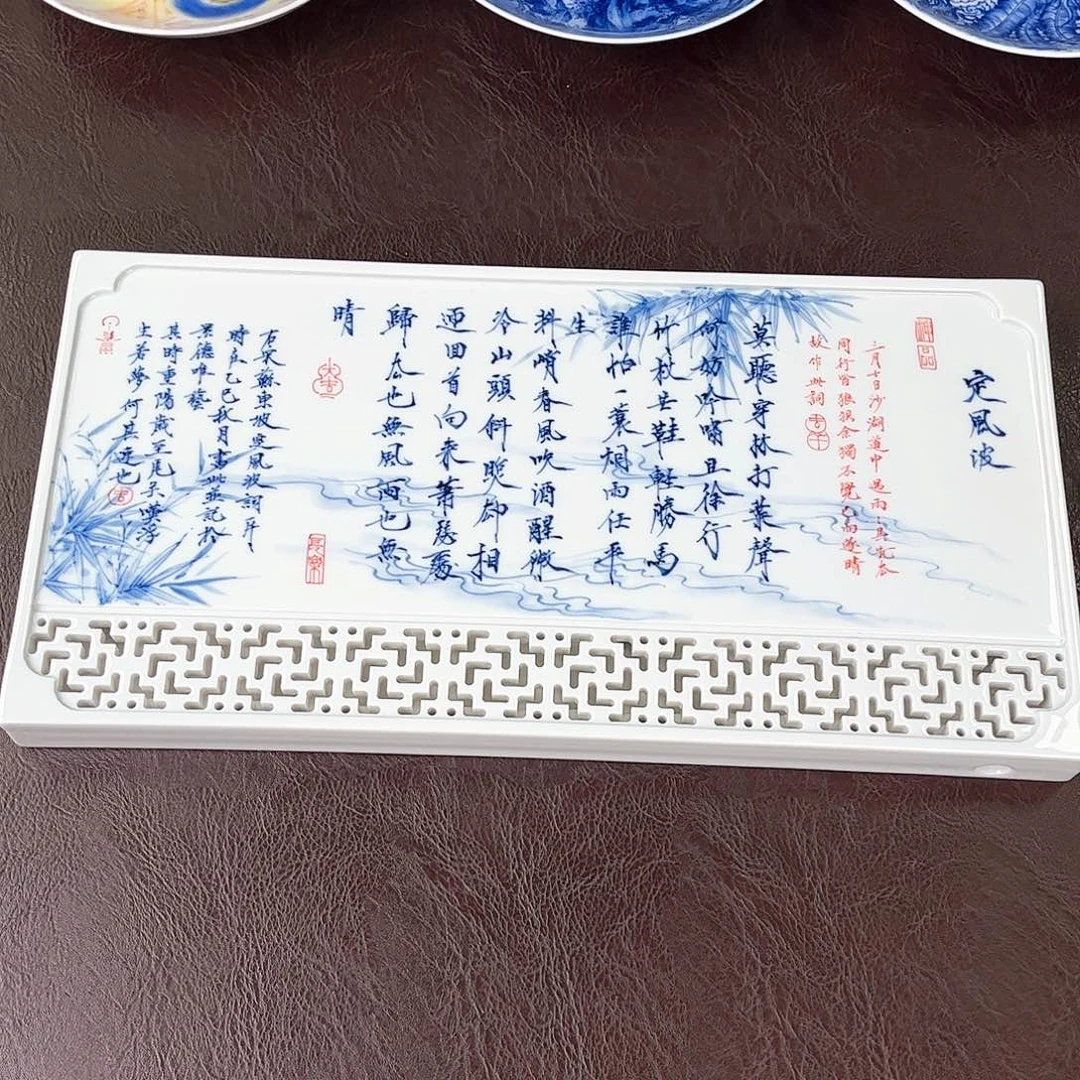 定風波
神品
三月七日沙湖道中遇雨
同行皆狼狽余獨不覺已而遂晴
故作此詞
莫聽穿林打葉聲
何妨吟嘯且徐行
竹杖芒鞋輕勝馬
誰怕一蓑烟雨任平
生
料峭春風吹酒醒微
冷山頭斜照却相
迎回首向来蕭瑟處
歸去也無風雨也無
晴
長樂
右宋蘇東坡定風波詞并
時在乙巳秋月書此並記於
景德唯藝
其時重陽
生若夢何其速也